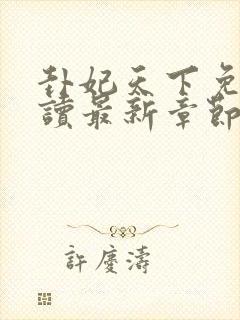 卦妃天下免
讀最新章節
許慶濤